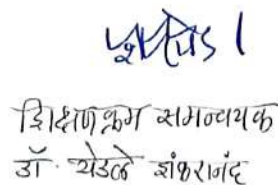 शिक्षणक्रम समन्वयक
डॉ. येडले शंकरानंद